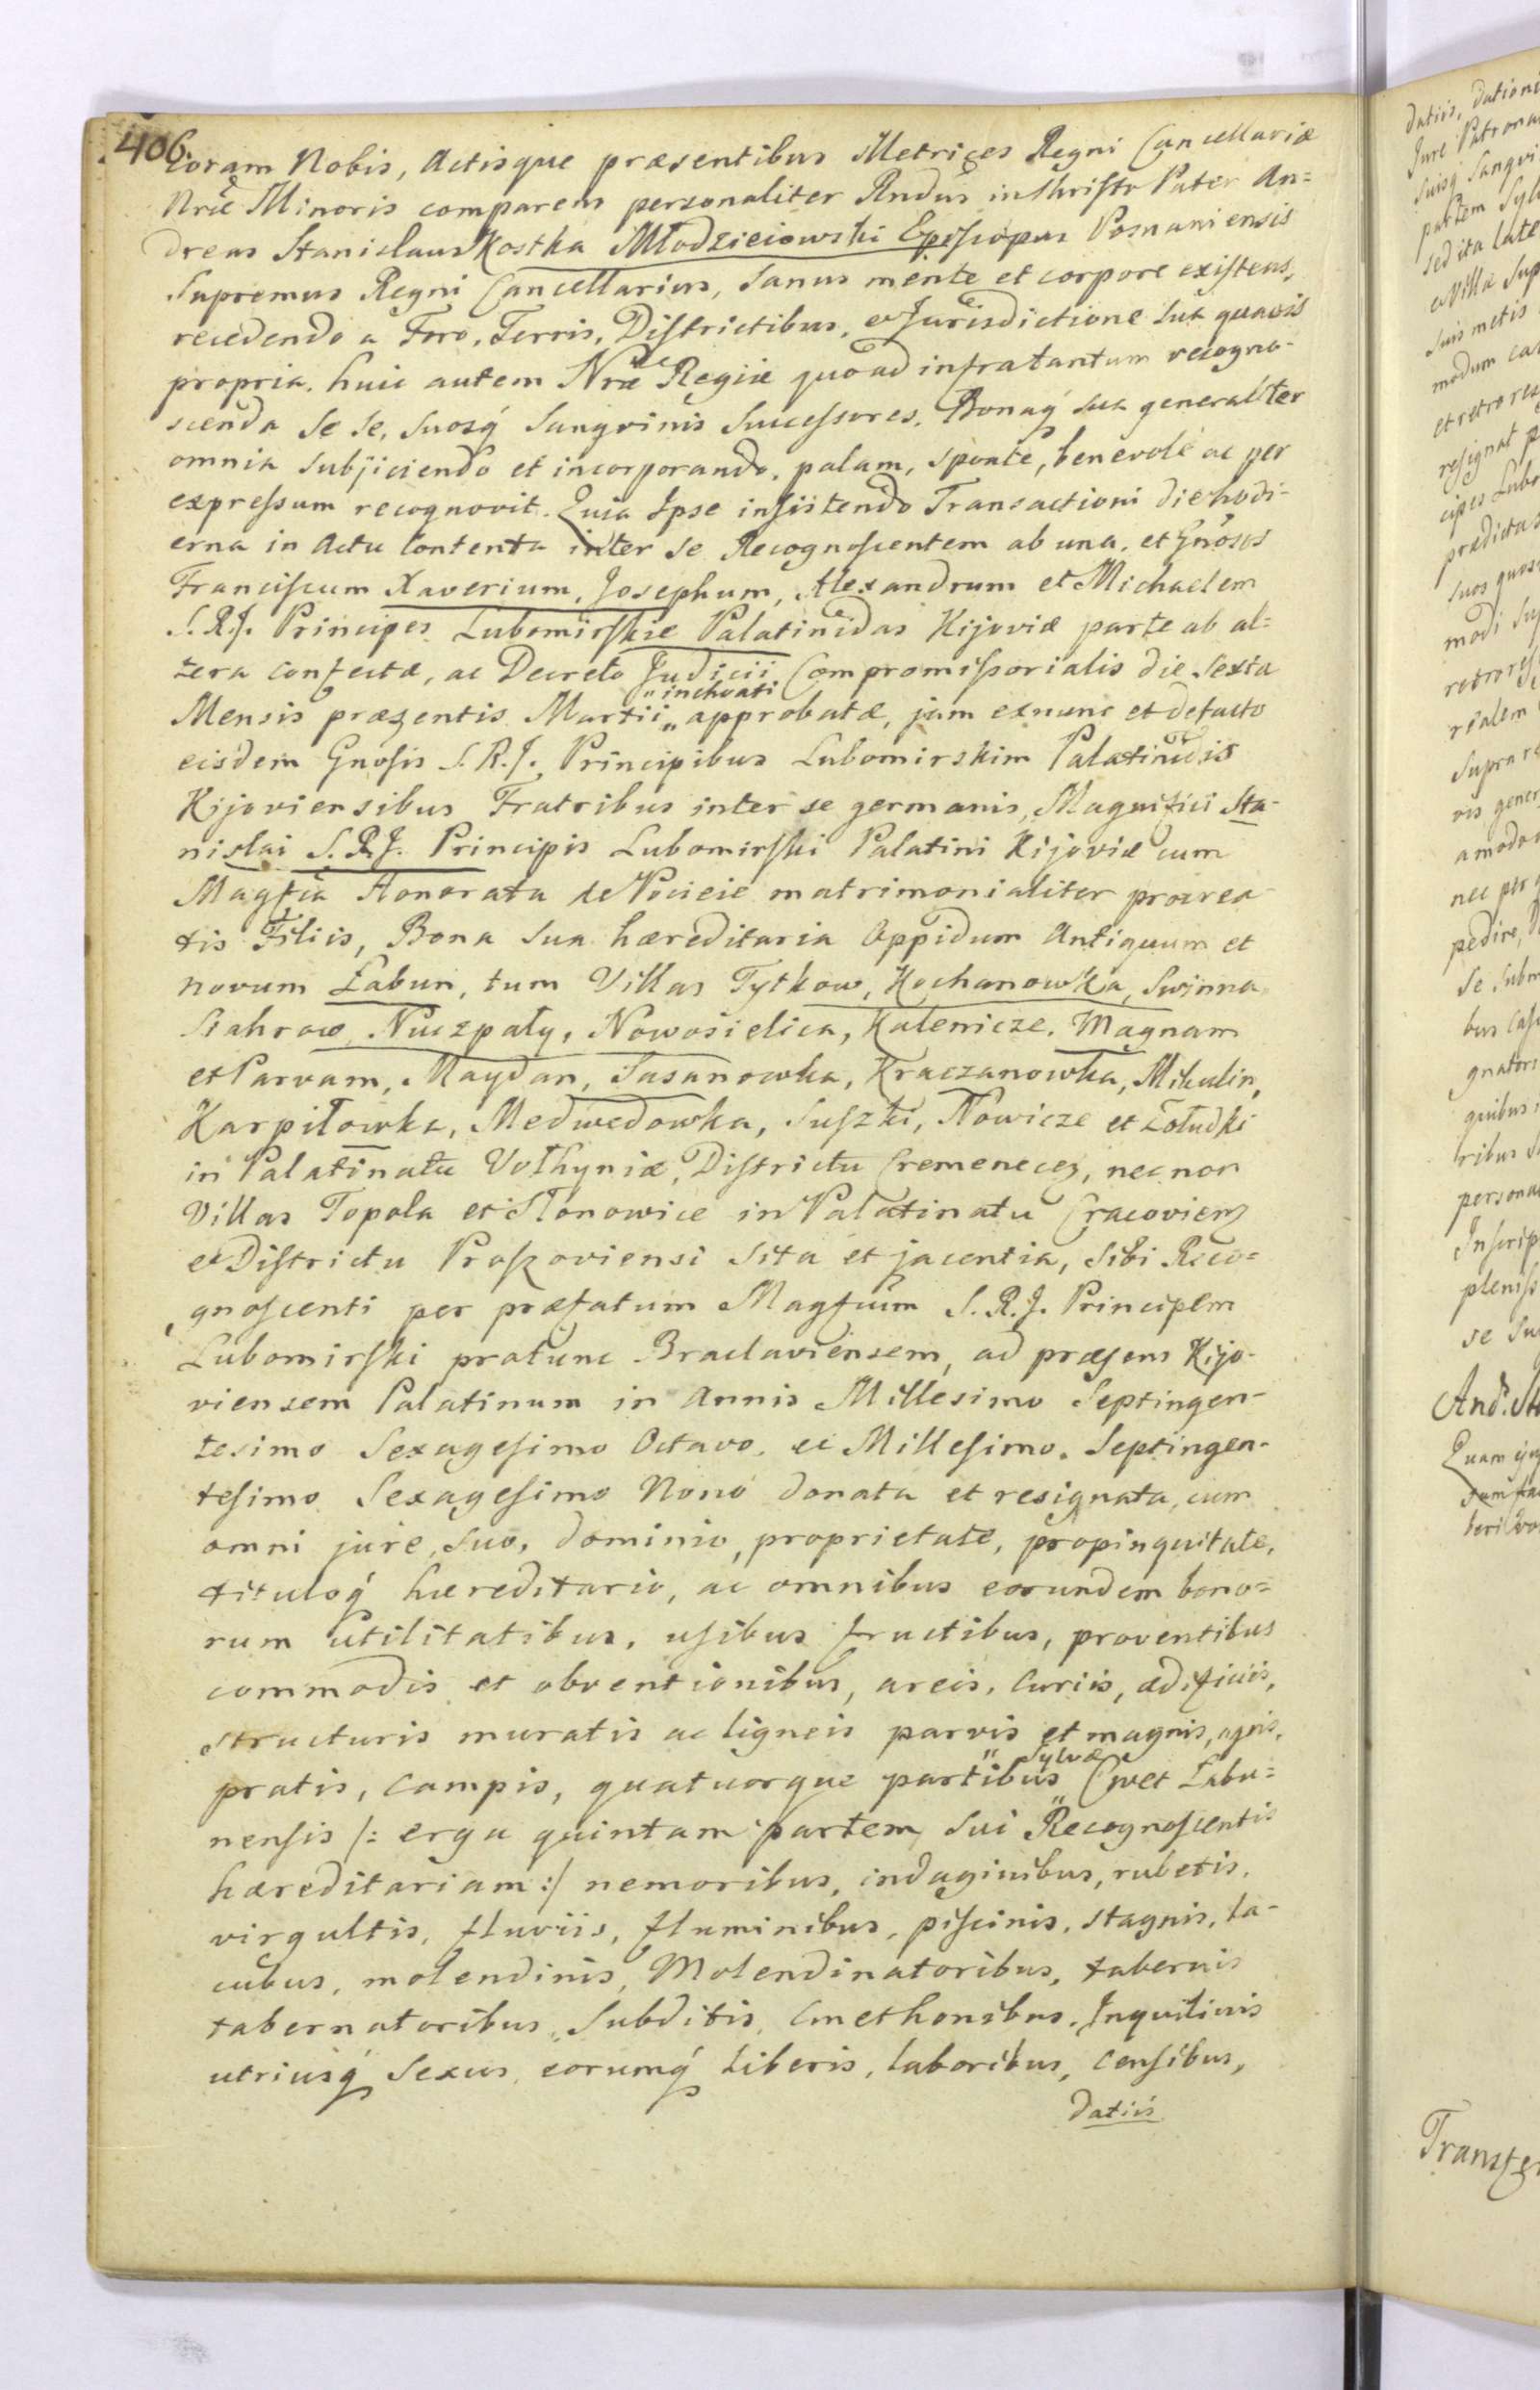 406.
Coram Nobis, Actisque præsentibus Metrices Regni Cancellariæ
Nræ Minoris comparens personaliter Rndus in Christo Pater An=
dreas Stanislaus Kostka Młodzieiowski Episcopus Posnaniensis
Supremus Regni Cancellarius, Sanus mente et corpore existens,
recedendo a Foro, Terris, Districtibus, et Jurisdictione sua quavis
propria, huic autem Nræ Regiæ quoad infratantum recogno-
scenda Se se, Suosq́ Sangvinis Successores, Bonaq́ sua generaliter
omnia subjiciendo et incorporando, palam, sponte, benevole ac per
expressum recognovit. Quia Ipse insistendo Transactioni die hodi-
erna in Actu Contenta inter se Recognoscentem ab una, et Gnosos
Franciscum Xaverium, Josephum, Alexandrum et Michaelem
S.R.J. Principes Lubomirskie Palatinidas Kijoviæ parte ab al=
tera confectæ, ac Decreto Judicii Compromissorialis die Sexta
Mensis præsentis Martii „inchoati„ approbatæ, jam exnunc et defacto
eisdem Gnosis S.R.J. Principibus Lubomirskim Palatinidis
Kijoviensibus Fratribus inter se germanis, Magnifici Sta-
nislai S.R.J. Principis Lubomirski Palatini Kijoviæ cum
Magfca Honorata de Pocieie matrimonialiter procrea-
tis Filiis, Bona Sua hæreditaria Oppidum Antiquum et
novum Łabun, tum Villas Tytkow, Kochanowka, Swinna
Siahrow, Nuczpały, Nowosielica, Kalenicze, Magnam
et Parvam, Maydan, Sasanowka, Kraczanowka, Mikulin,
Karpiłowka, Medwedowka, Suszki, Nowicze et Żołudki
in Palatinatu Volhyniæ, Districtu Cremenecen, nec non
Villas Topola et Słonowice in Palatinatu Cracovien
et Districtu Proszoviensi Sita et jacentia, Sibi Reco=
gnoscenti per præfatum Magfcum S.R.J. Principem
Lubomirski protunc Braclaviensem, ad præsens Kijo-
viensem Palatinum in Annis Millesimo Septingen-
tesimo Sexagesimo Octavo, et Millesimo, Septingen-
tesimo Sexagesimo Nono donata et resignata, cum
omni jure, suo, dominio, proprietate, propinquitate,
tituloq́ hæreditario, ac omnibus eorundem bono=
rum utilitatibus, usibus fructibus, proventibus
commodis et obventionibus, areis, Curiis, ædificiis,
structuris muratis ac ligneis parvis et magnis, agris,
pratis, campis, quatuorque partibus „Sylvæ„ Cwet Łabu=
nensis /: erga quintam partem Sui Recognoscentis
hæreditariam :/ nemoribus, indaginibus, rubetis,
virgultis, fluviis, fluminibus, piscinis, stagnis, la-
cubus, molendinis, Molendinatoribus, tabernis
tabernatoribus, Subditis, Cmethonibus, Inquilinis
utriusq́ Sexus, eorumq́ liberis, laboribus, Censibus,
datiis
datiis, dationi
Jure Patrona
suisq́ Sangvi
partem Syl
sed ita late
suis metis
modum
et retro
resignat
cipes Lubo
prædictas
suos quos
modi
realem
Supra
vis gener
amodo
nec per
pedire,
se subm
bus
gnator
quibus
ribus
persona
Inscrip
pleniss
se
And. St
Quam
beri
Transf